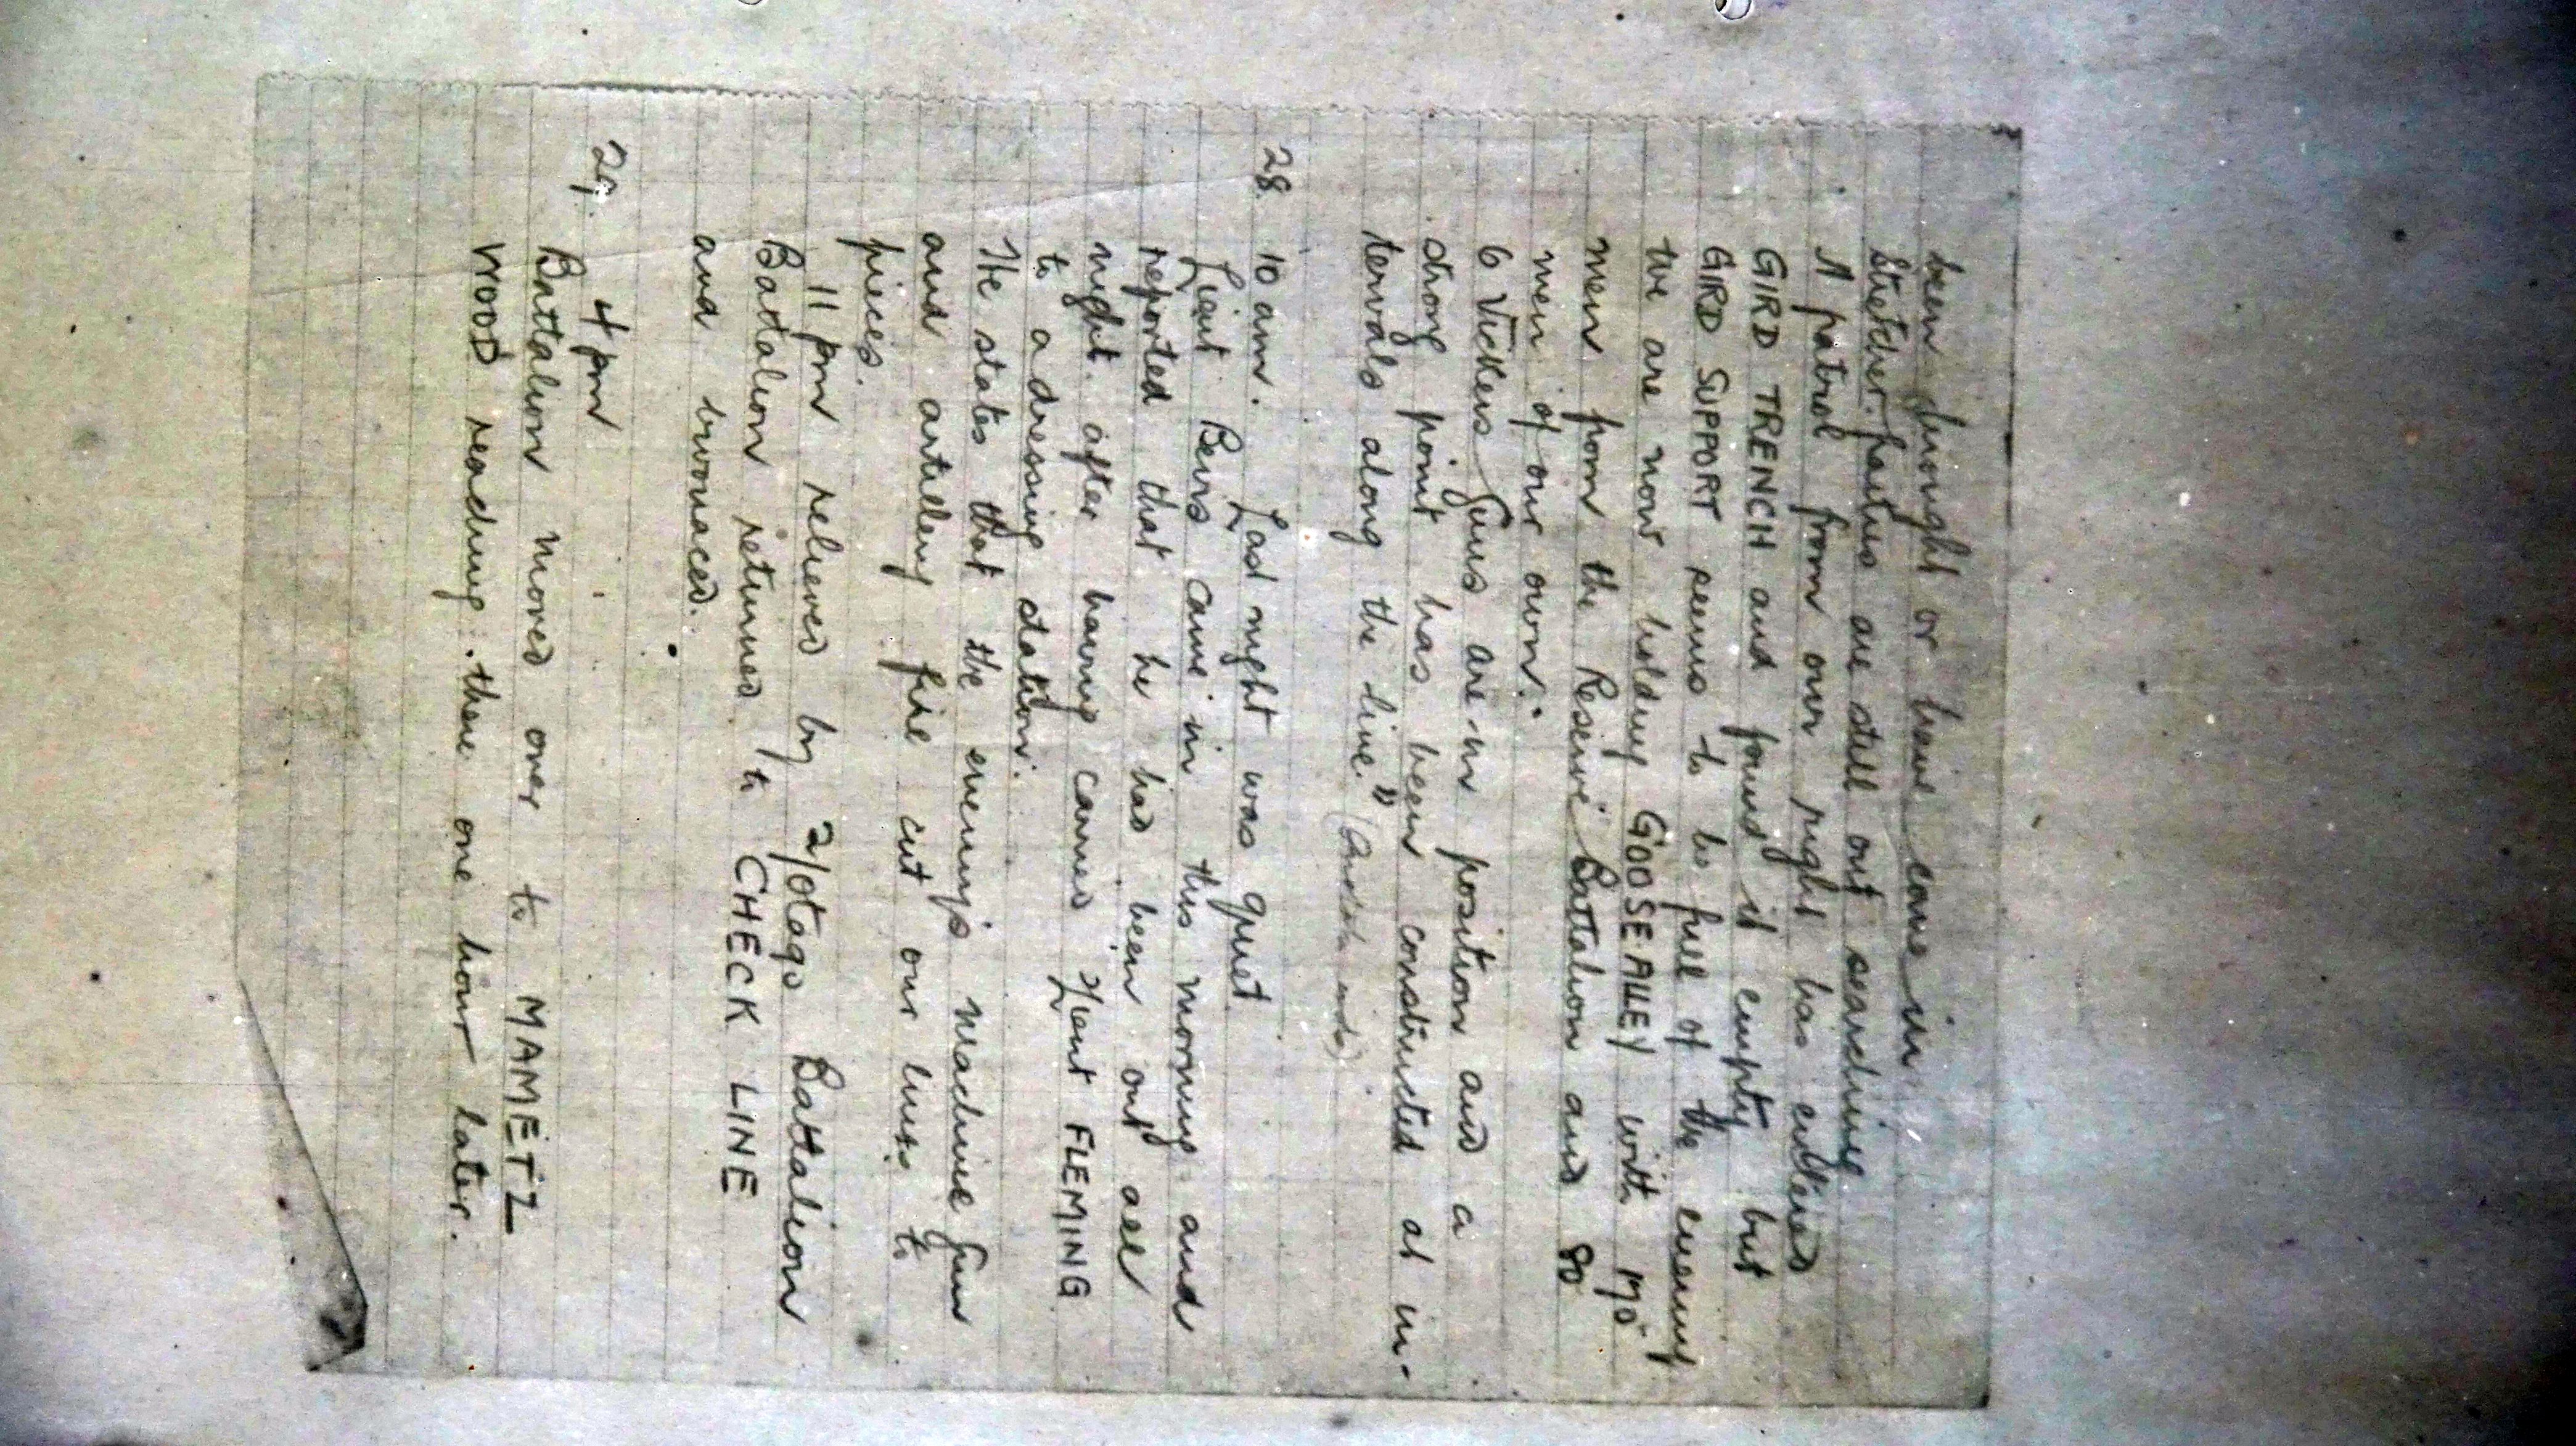 been brought or have come in
Stretcher parties are still out searching
A patrol from our right has entered
GIRD TRENCH and found it empty but
GIRD SUPPORT seems to be full of the enemy
We are now holding GOOSE ALLEY with 170
men from the Reserve Battalion and 80
men of our own.
6 Vickers Guns are in position and a
strong point has been constructed at in-
tervals along the line."
28. 10 am. Last night was quiet.
Lieut came in this morning and
reported that he had been out all
night after having carried 2/Lieut FLEMING
to a dressing station.
He states that the enemy's machine gun
and artillery fire cut our lines to
pieces.
11 pm relieved by 2/Otago Battalion
Battalion returned to CHECK LINE
and bivouaced.
29. 4 pm
Battalion moved over to MAMETZ
WOOD reaching there one hour later.